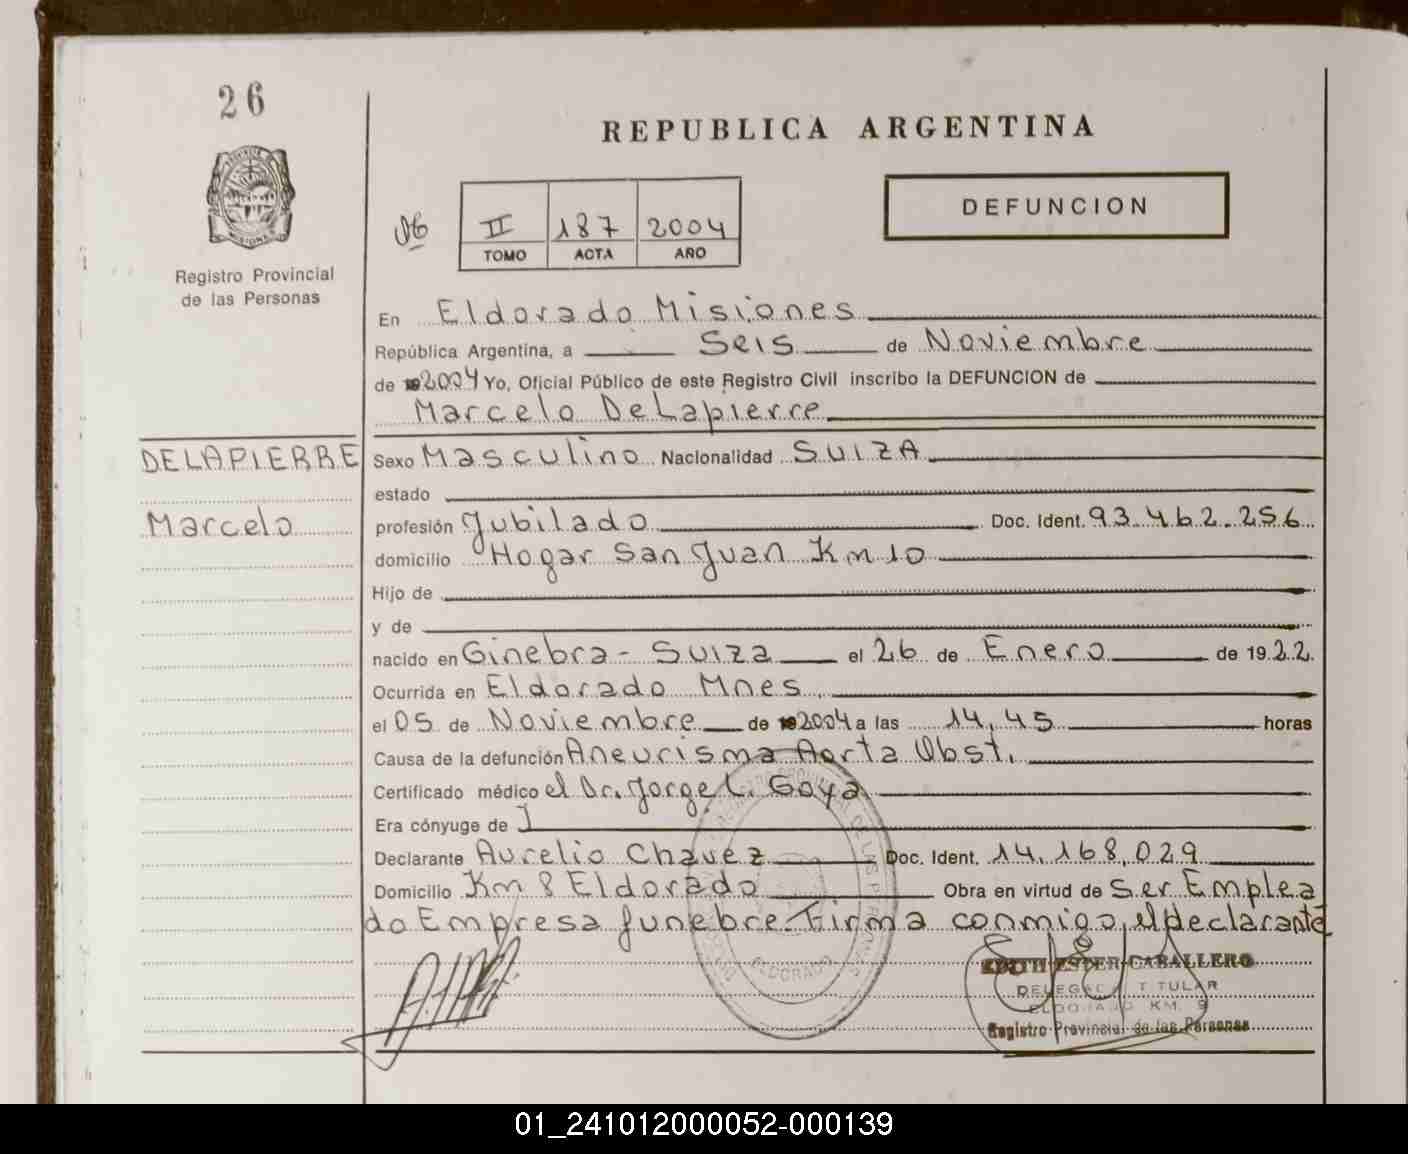 26
Registro Provincial
de las Personas
REPUBLICA ARGENTINA
DEFUNCION
II 187 2004
TOMO ACTA AÑO
En Eldorado Misiones
República Argentina, a Seis de Noviembre
de 2004 Yo, Oficial Público de este Registro Civil inscribo la DEFUNCION de
Marcelo DeLapierre
DELAPIERRE
Marcelo
Sexo Masculino Nacionalidad SUIZA
estado
profesión Jubilado Doc. Ident. 93.462.256
domicilio Hogar San Juan Km 10
Hijo de
y de
nacido en Ginebra - Suiza el 26 de Enero de 1922.
Ocurrida en Eldorado Mnes.
el 05 de Noviembre de 2004 a las 14,45 horas
Causa de la defunción Aneurisma Aorta Obst.
Certificado médico el Dr. Jorge L. Goya
Era cónyuge de
Declarante Aurelio Chavez Doc. Ident. 14.168.029
Domicilio Km 8 Eldorado Obra en virtud de Ser Emplea
do Empresa funebre. Firma conmigo el declarante
ELDORADO
EDITH ESTER CABALLERO
DELEGADA TITULAR
ELDORADO KM. 9
Registro Provincial de las Personas
01_241012000052-000139